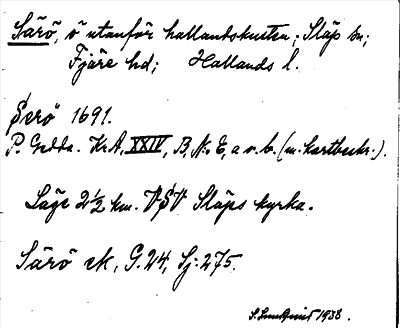 Särö, ö utanför hallandskusten; Släp sn;
Fjäre hd; Hallands l.
Serö 1691.
P. Gedda. KrA, XXIV, B, N:o 6, a o. b. (m. kartbeskr.).
Läge 2½ km. VSV Släps kyrka.
Särö ek, G. 24, Sj: 275.
S. Lundqvist 1938.